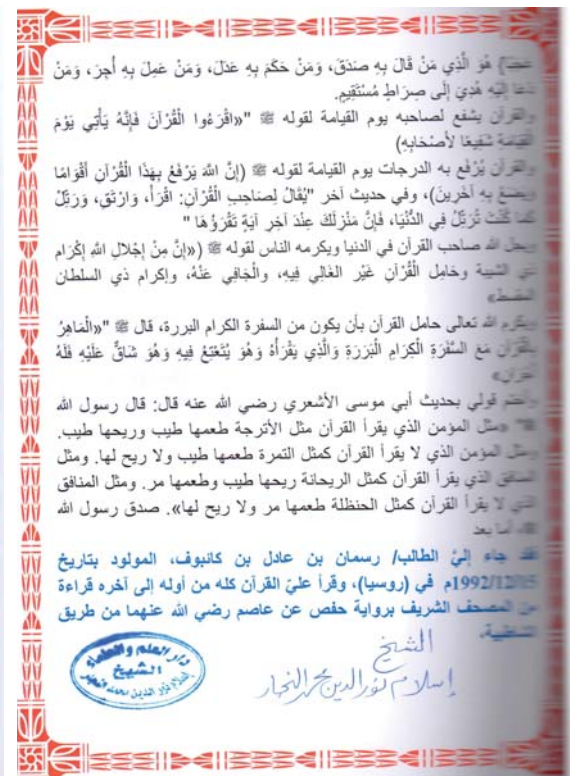 عجبا) هُوَ الَّذِي مَنْ قَالَ بِهِ صَدَقَ، وَمَنْ حَكَمَ بِهِ عَدَلَ، وَمَنْ عَمِلَ بِهِ أُجِرَ، وَمَنْ
دَعَا إِلَيْهِ هُدِيَ إِلَى صِرَاطٍ مُسْتَقِيمٍ.
والقرآن يشفع لصاحبه يوم القيامة لقوله ﷺ "«اقْرَءُوا الْقُرْآنَ فَإِنَّهُ يَأْتِي يَوْمَ
الْقِيَامَةِ شَفِيعًا لأَصْحَابِهِ)
والقرآن يُرْفَع به الدرجات يوم القيامة لقوله ﷺ (إِنَّ اللهَ يَرْفَعُ بِهَذَا الْقُرْآنِ أَقْوَامًا
وَيَضَعُ بِهِ آخَرِينَ)، وفي حديث آخر "يُقَالُ لِصَاحِبِ الْقُرْآنِ: اقْرَأْ، وَارْتَقِ، وَرَتِّلْ
كَمَا كُنْتَ تُرَتِّلُ فِي الدُّنْيَا، فَإِنَّ مَنْزِلَكَ عِنْدَ آخِرِ آيَةٍ تَقْرَؤُهَا "
ويجل الله صاحب القرآن في الدنيا ويكرمه الناس لقوله ﷺ («إِنَّ مِنْ إِجْلالِ اللهِ إِكْرَامَ
ذي الشيبة وحَامِلِ الْقُرْآنِ غَيْرِ الْغَالِي فِيهِ، والْجَافِي عَنْهُ، وإكرام ذي السلطان
المقسط»
ويكرم الله تعالى حامل القرآن بأن يكون من السفرة الكرام البررة، قال ﷺ "«الْمَاهِرُ
بِالْقُرْآنِ مَعَ السَّفَرَةِ الْكِرَامِ الْبَرَرَةِ وَالَّذِي يَقْرَأُهُ وَهُوَ يُتَعْتِعُ فِيهِ وَهُوَ شَاقٌّ عَلَيْهِ فَلَهُ
أجران»
وأختم قولي بحديث أبي موسى الأشعري رضي الله عنه قال: قال رسول الله
ﷺ" «مثل المؤمن الذي يقرأ القرآن مثل الأترجة طعمها طيب وريحها طيب.
ومثل المؤمن الذي لا يقرأ القرآن كمثل التمرة طعمها طيب ولا ريح لها. ومثل
المنافق الذي يقرأ القرآن كمثل الريحانة ريحها طيب وطعمها مر. ومثل المنافق
الذي لا يقرأ القرآن كمثل الحنظلة طعمها مر ولا ريح لها». صدق رسول الله
ﷺ، أما بعد
فقد جاء إليَّ الطالب/ رسمان بن عادل بن كانبوف، المولود بتاريخ
1992/12/05م في (روسيا)، وقرأ عليّ القرآن كله من أوله إلى آخره قراءة
من المصحف الشريف برواية حفص عن عاصم رضي الله عنهما من طريق
الشاطبية.
الشيخ
إسلام نور الدين محمد النجار
دار العلم والعلماء
الشيخ
إسلام نور الدين محمد النجار